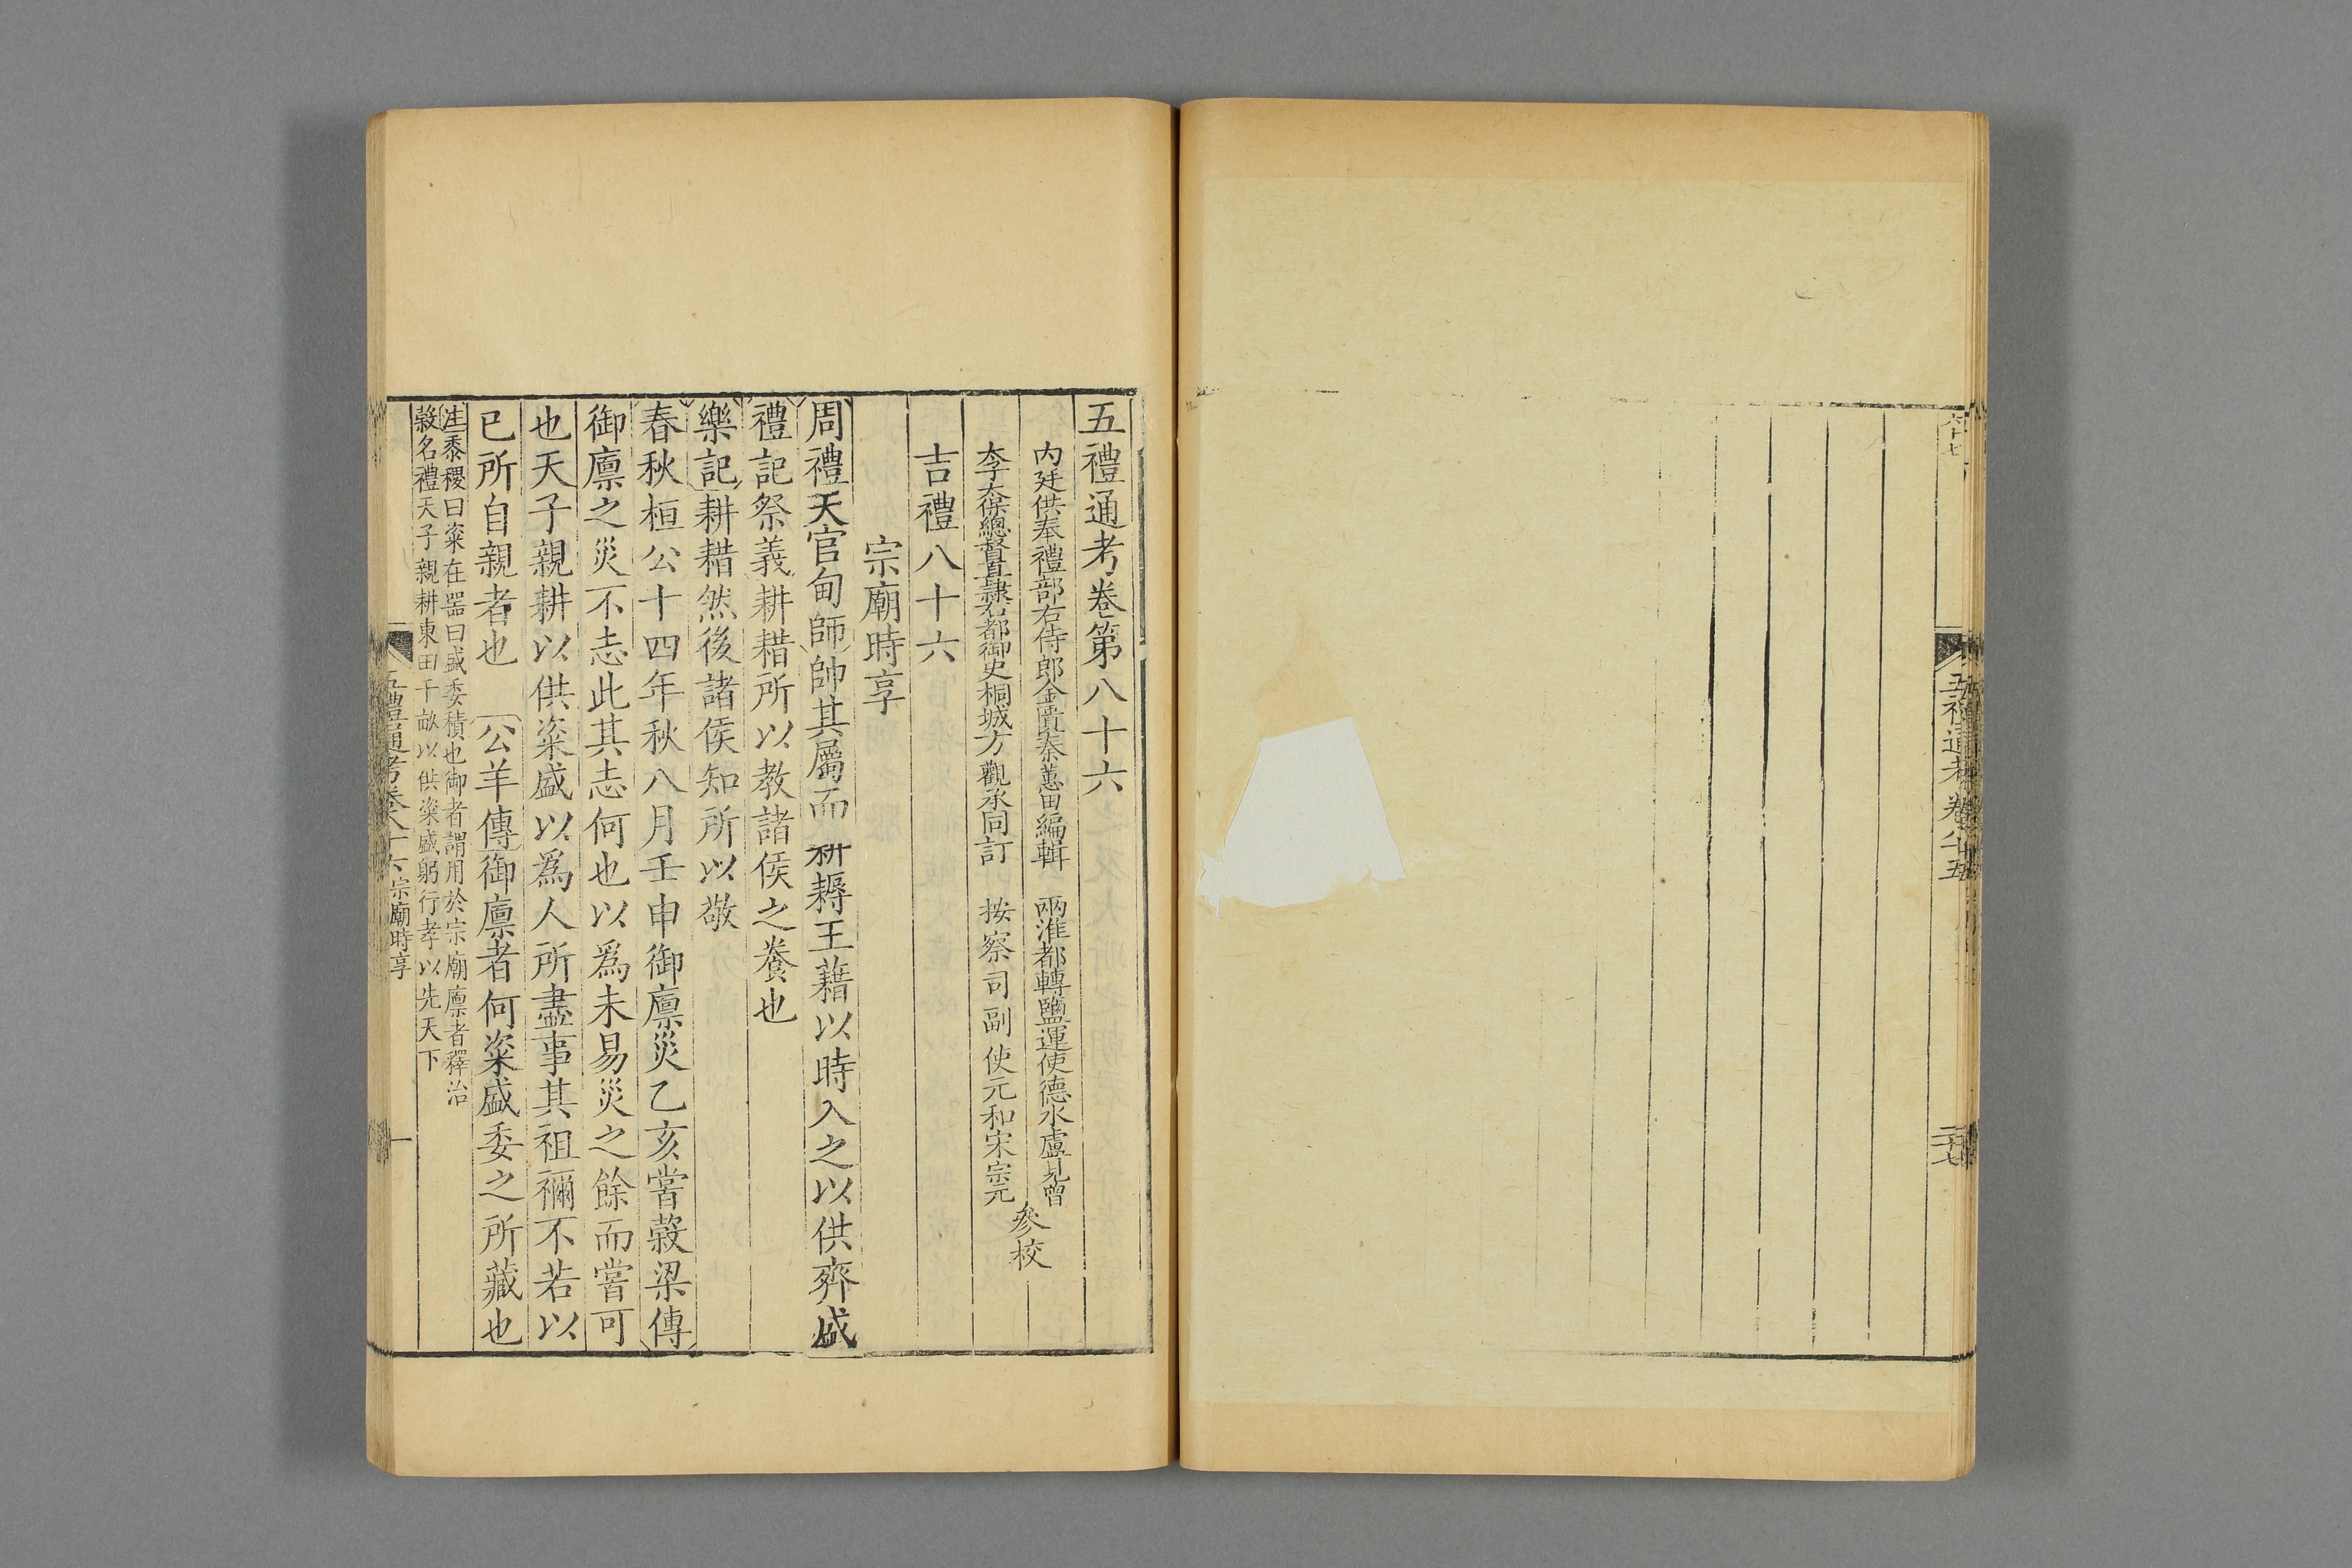 五禮通考卷八十五
五禮通考卷第八十六
內廷供奉禮部右侍郎金匱秦蕙田編輯　兩淮都轉鹽運使德水盧見曾
李太保總督直隸右都御史桐城方觀承同訂　按察司副使元和宋宗元
參校
吉禮八十六
宗廟時享
周禮天官甸師帥其屬而耕耨王藉以時入之以供齊盛
禮記祭義耕耤所以教諸侯之養也
樂記耕耤然後諸侯知所以敬
春秋桓公十四年秋八月壬申御廩災乙亥嘗穀梁傳
御廩之災不志此其志何也以爲未易災之餘而嘗可
也天子親耕以供粢盛以爲人所盡事其祖禰不若以
已所自親者也　公羊傳御廩者何粢盛委之所藏也
注黍稷曰粢在器曰盛委積也御者謂用於宗廟廩者釋治
穀名禮天子親耕東田千畝以供粢盛躬行孝以先天下
五禮通考卷八十六 宗廟時享
一